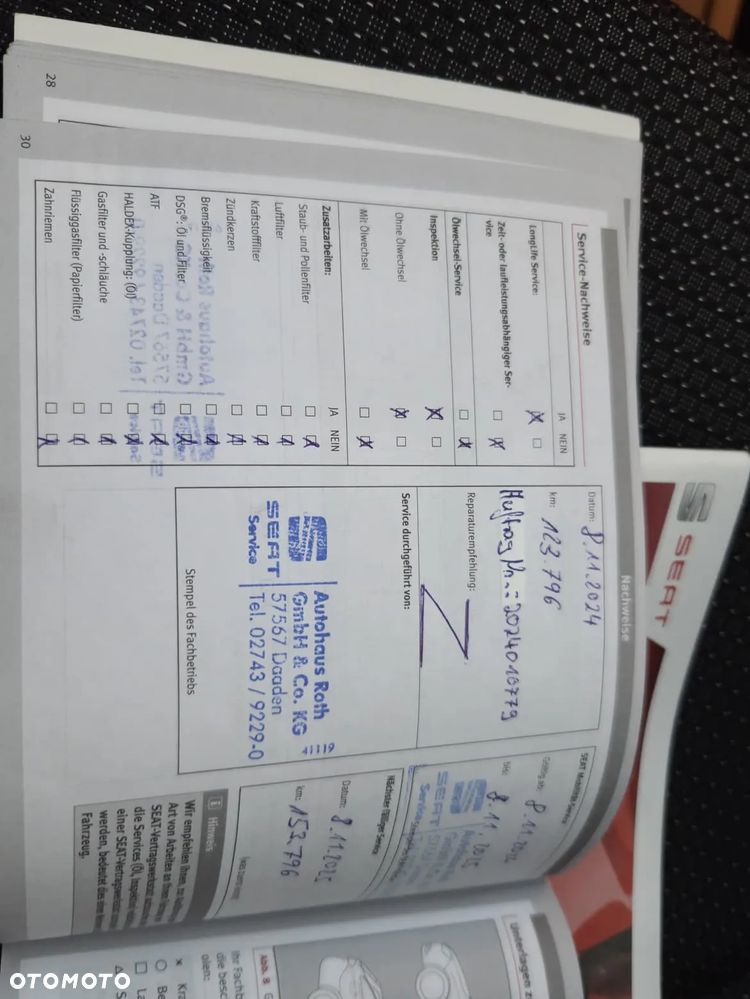 28
30
Nachweise
Service-Nachweise
JA NEIN
LongLife Service:
Zeit- oder laufleistungsabhängiger Ser-
vice
Ölwechsel-Service
Inspektion
Ohne Ölwechsel
Mit Ölwechsel
Zusatzarbeiten:
JA NEIN
Staub- und Pollenfilter
Luftfilter
Kraftstofffilter
Zündkerzen
Bremsflüssigkeit
DSG®: Öl und Filter
ATF
HALDEX-Kupplung: (Öl)
Gasfilter und -schläuche
Flüssiggasfilter (Papierfilter)
Zahnriemen
Datum: 8.11.2024
km: 123.796
Reparaturempfehlung:
Auftrag Nr.: 2024010779
Service durchgeführt von:
SEAT
Service
Autohaus Roth
GmbH & Co. KG
57567 Daaden
Tel. 02743 / 9229-0
Stempel des Fachbetriebs
SEAT Mobilitäts-Service
Gültig ab: 8.11.202
bis: 8.11.2025
SEAT
Service
Nächster fälliger Service
Datum: 8.11.2025
km: 153.796
Hinweis
Wir empfehlen Ihnen,
Art von Arbeiten an Ihrem
SEAT-Vertragswerkstatt
die Services (Öl, Inspektion
einer SEAT-Vertragswerkstatt
werden, bedeutet dies
Fahrzeug.
Unterlagen
Abb. 8
Ihr Fachb
die besc
olen:
SEAT
OTOMOTO